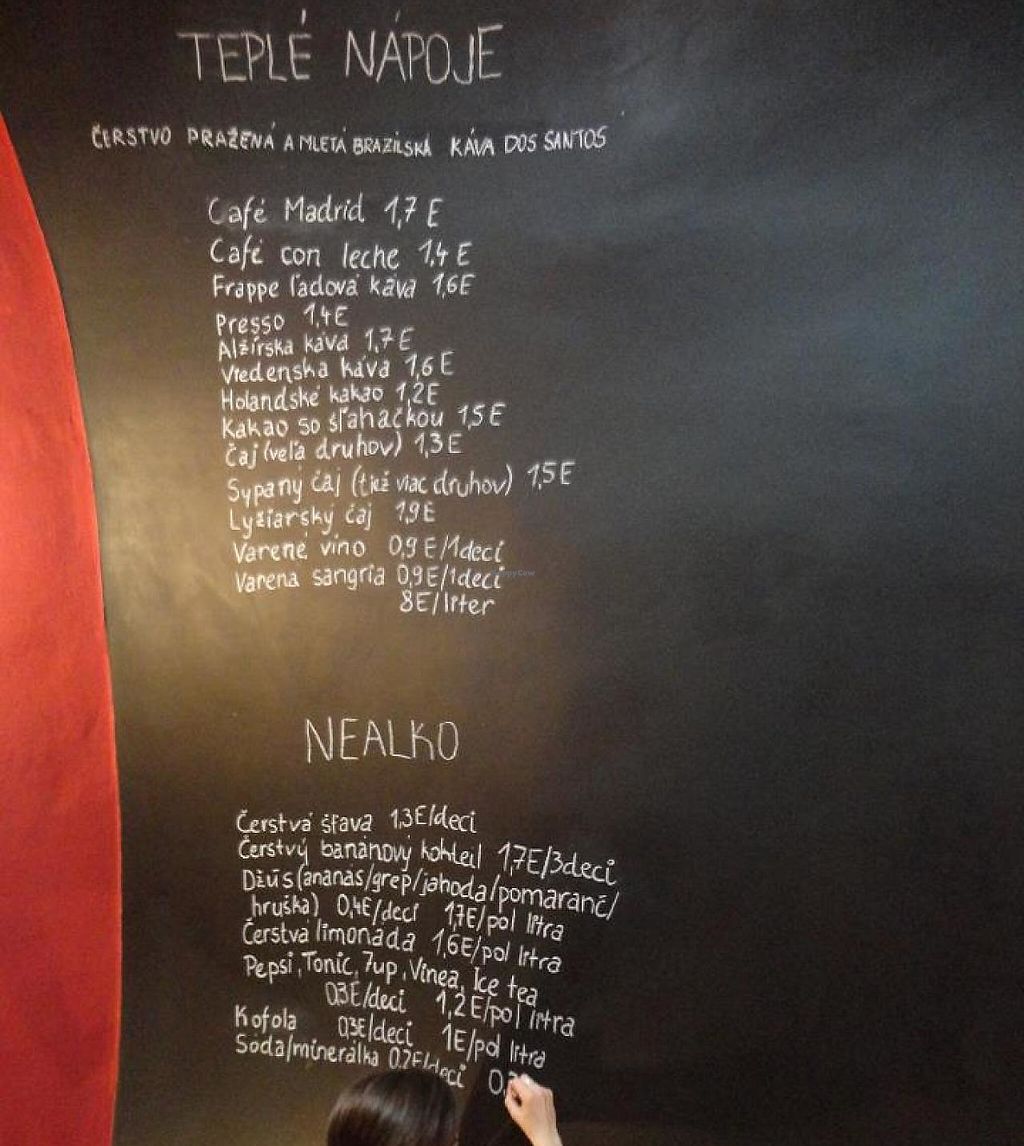 TEPLÉ NÁPOJE
ČERSTVO PRAŽENÁ A MLETÁ BRAZÍLSKÁ KÁVA DOS SANTOS
Café Madrid 1,7 E
Café con leche 1,4 E
Frappe ľadová káva 1,6E
Presso 1,4E
Alžírska káva 1,7E
Viedenska káva 1,6 E
Holandské kakao 1,2E
Kakao so šľahačkou 1,5E
Čaj (veľa druhov) 1,3E
Sypaný čaj (tiež viac druhov) 1,5E
Lyžiarsky čaj 1,9E
Varené víno 0,9 E/1deci
Varená sangria 0,9E/1deci
8E/liter
NEALKO
Čerstvá šťava 1,3E/deci
Čerstvý banánový kokteil 1,7E/3deci
Džús (ananás/grep/jahoda/pomaranč/
hruška) 0,4E/deci 1,7E/pol litra
Čerstvá limonáda 1,6E/pol litra
Pepsi, Tonic, 7up, Vinea, Ice tea
0,3E/deci 1,2E/pol litra
Kofola 0,3E/deci 1E/pol litra
Sóda/minerálka 0,2E/deci